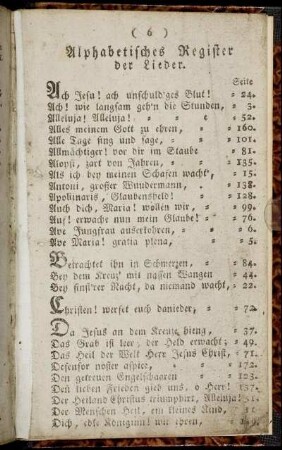 ( 6 )
Alphabetisches Register
der Lieder.
Seite
Ach Jesu! ach unschuld'ges Blut! = 24.
Ach! wie langsam geh'n die Stunden, = 3.
Alleluja! Alleluja! = = = 52.
Alles meinem Gott zu ehren, = = 160.
Alle Tage sing und sage, = = 101.
Allmächtiger! vor dir im Staube = 81.
Aloysi, zart von Jahren, = = 135.
Als ich bey meinen Schafen wacht', = 15.
Antoni, großer Wundermann, = 138.
Apollinaris, Glaubensheld! = 128.
Auch dich, Maria! wollen wir, = = 99.
Auf! erwacht nun mein Glaube! = 76.
Ave Jungfrau auserkohren, = = 6.
Ave Maria! gratia plena, = = 5.
Betrachtet ihn in Schmerzen, = = 84.
Bey dem Kreuz' mit nassen Wangen = 44.
Bey finst'rer Nacht, da niemand wacht, = 22.
Christen! werfet euch danieder, = = 72.
Da Jesus an dem Kreuze hieng, = 37.
Das Grab ist leer, der Held erwacht; = 49.
Das Heil der Welt Herr Jesus Christ, = 71.
Defensor noster aspice, = = 172.
Den getreuen Engelschaaren = = 123.
Den lieben Frieden gieb uns, o Herr! 137.
Der Heiland Christus triumphirt, Alleluja!
Der Menschen Heil, ein kleines Kind,
Dich, edle Königinn! wir ehren,